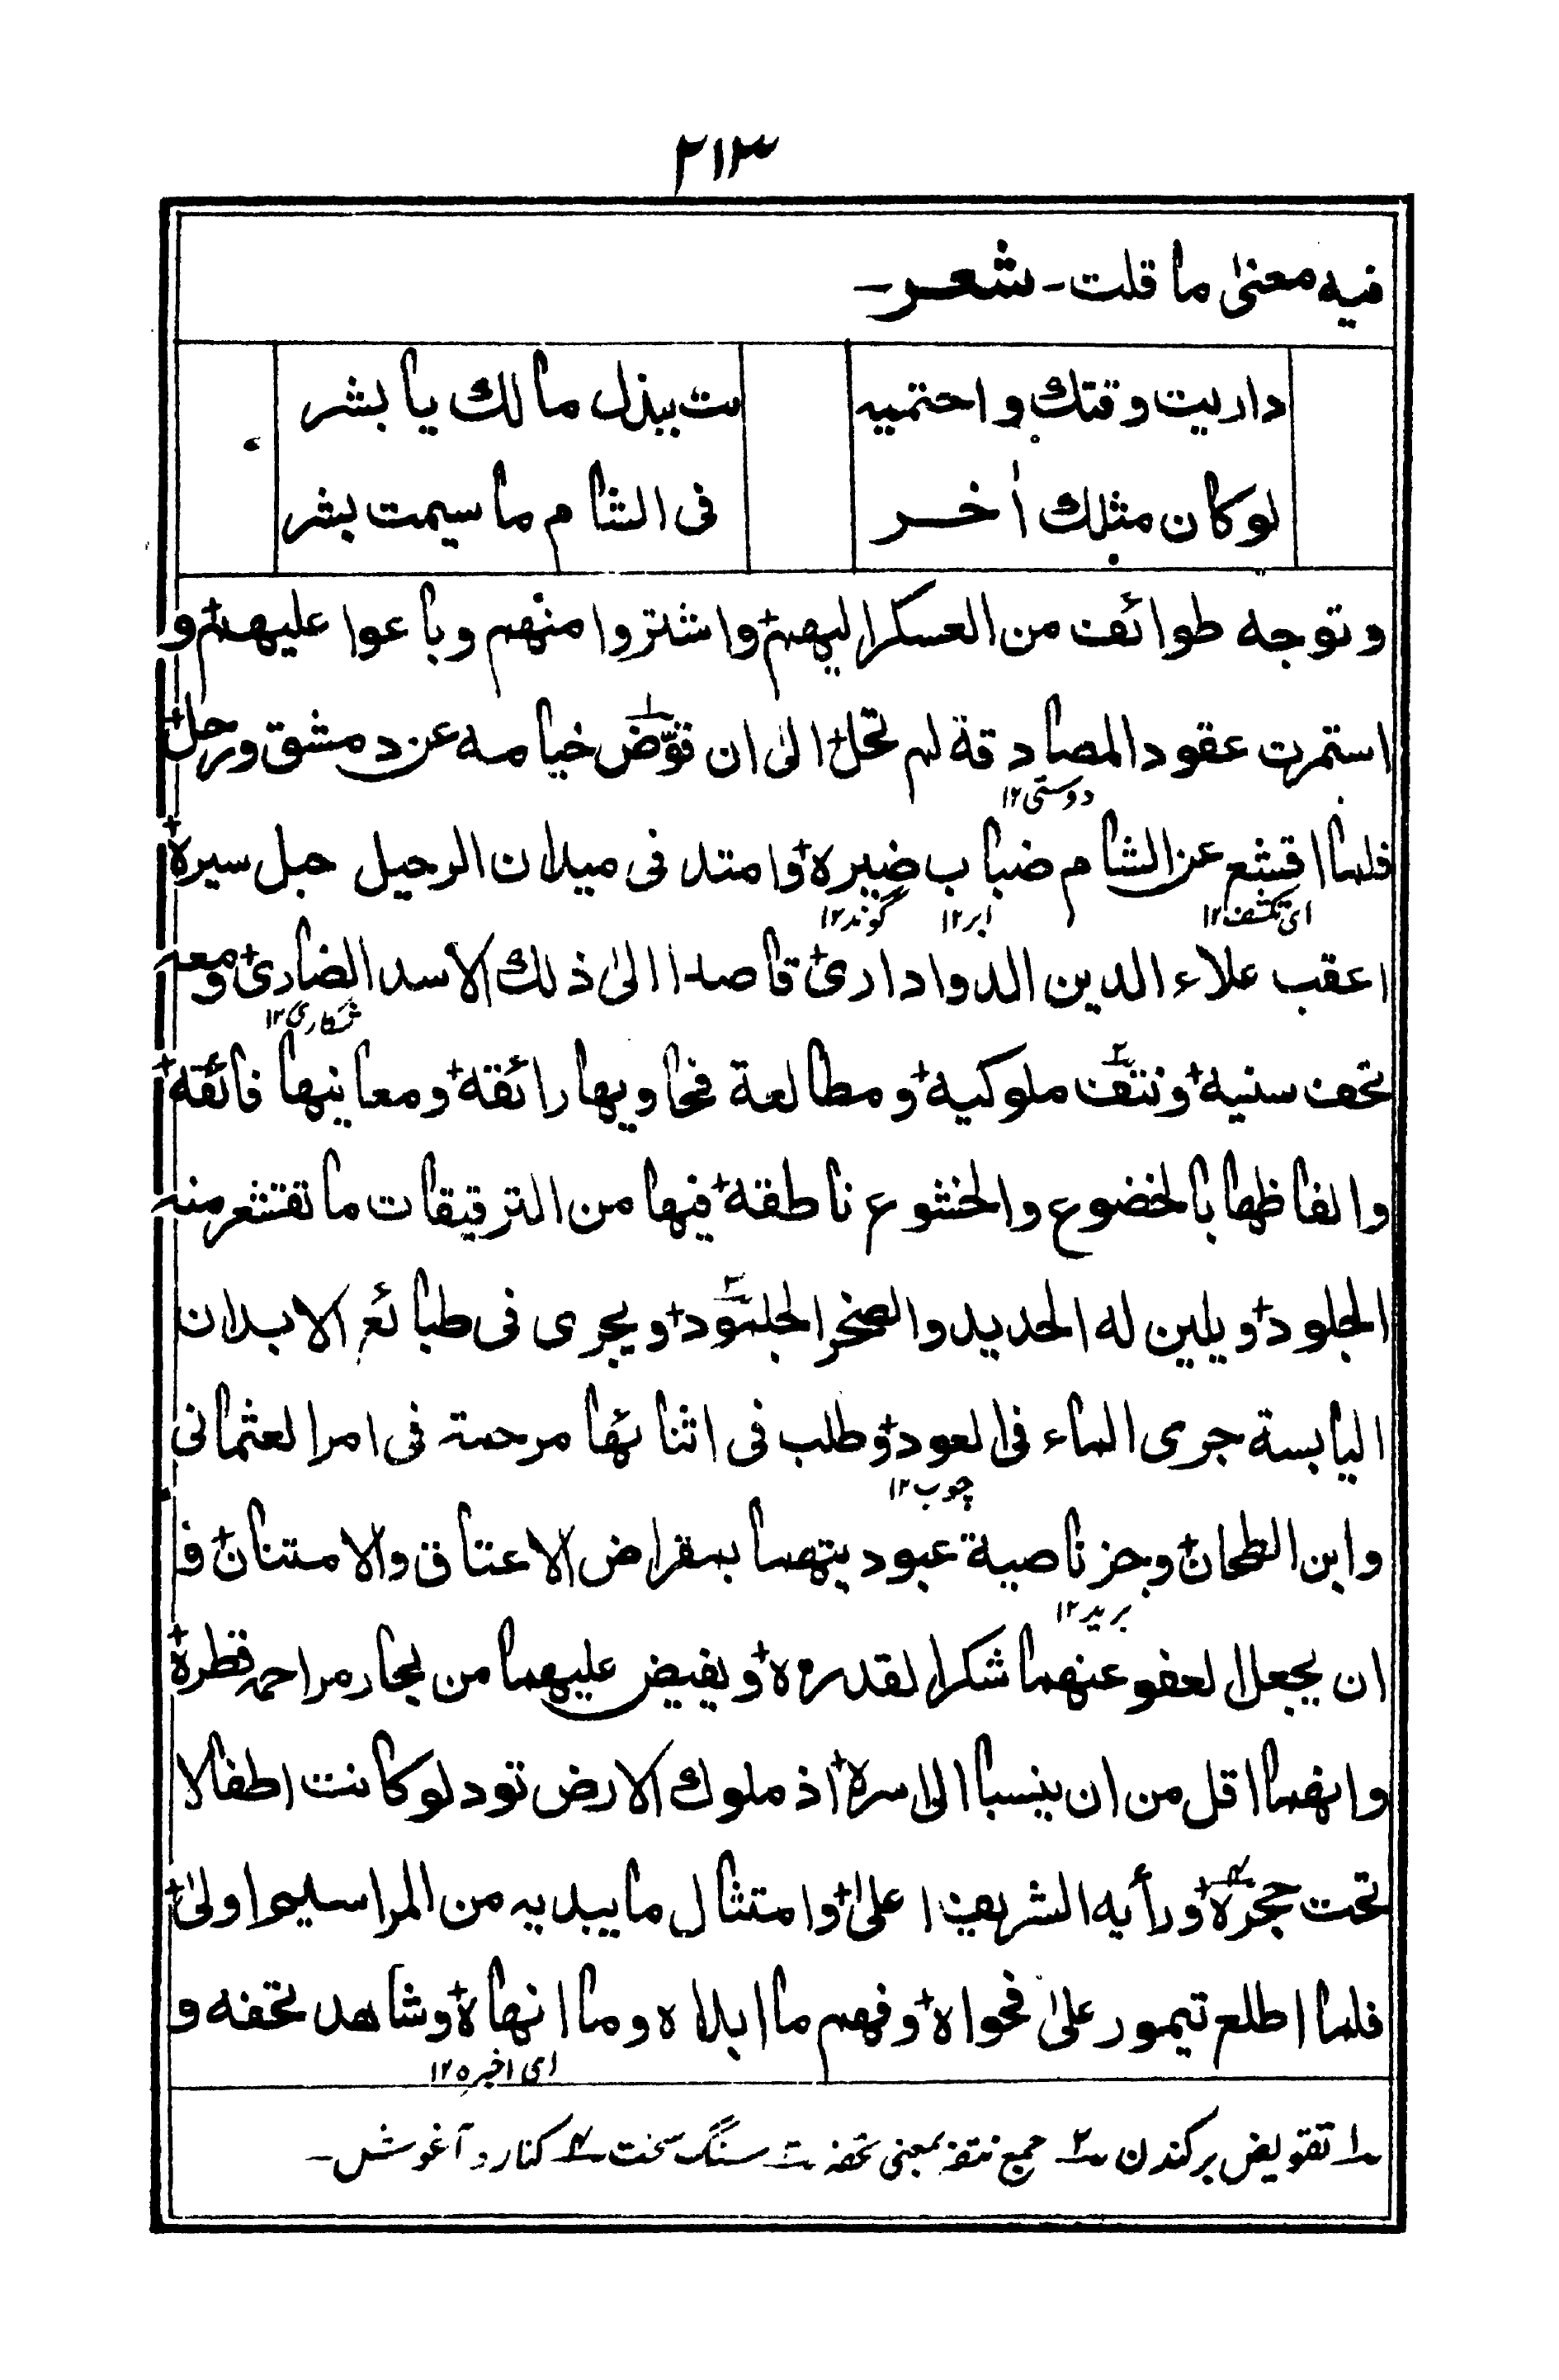 ٢١٣
فيه معنىٰ ما قلت - شعر -
داريت وقتك واحتميه ت ببذل مالك يا بشر
لوكان مثلك اٰخر فى الشام ما سيمت بشر
وتوجه طوائف من العسكر اليهم واشتروا منهم وباعوا عليهم و
استمرت عقود المصادقة لم تحل الىٰ ان قوّض خيامه عن دمشق ورحل
دوستى ١٢
فلما اقشع عن الشام ضباب ضيره وامتد فى ميدان الرحيل حبل سيره
اى تكشف ١٢ ابر ١٢ گوند ١٢
اعقب علاء الدين الدوادارى قاصدا الىٰ ذلك الاسد الضارى ومعه
شكارى ١٢
تحف سنيه ونتف ملوكيه ومطالعة فحاويها رائقة ومعانيها فائقة
والفاظها بالخضوع والخشوع ناطقة فيها من الترقيقات ما تقشعر منه
الجلود ويلين له الحديد والصخر الجلمود ويجرى فى طبائع الابدان
اليابسة جرى الماء فى العود وطلب فى اثنائها مرحمة فى امر العثمانى
چوب ١٢
وابن الطحان وجز ناصية عبوديتهما بمقراض الاعتاق والامتنان و
بريد ١٢
ان يجعل العفو عنهما شكرا لقدره ويفيض عليهما من بحار مراحمه قطرة
وانهما اقل من ان ينسبا الىٰ اسره اذ ملوك الارض تود لو كانت اطفالا
تحت حجره ورأيه الشريف اعلىٰ وامتثال ما يبديه من المراسيم اولىٰ
فلما اطلع تيمور علىٰ فحواه وفهم ما ابداه وما انهاه وشاهد تحفه و
اى اخبره ١٢
١ تقويض بركندن ٢ جمع نتفه بمعنى تحفه ٣ سنگ سخت ٤ كنار و آغوش -